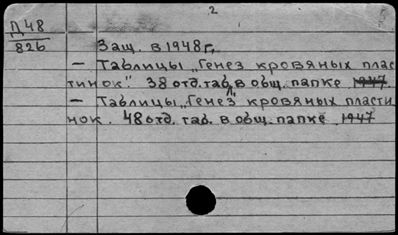 2
Д 48
826
Защ. в 1948 г.
— Таблицы „Генез кровяных плас
тинок". 38 отд. таб. в общ. папке 1947.
— Таблицы „Генез" кровяных пласти
нок. 48 отд. таб. в общ. папке 1947